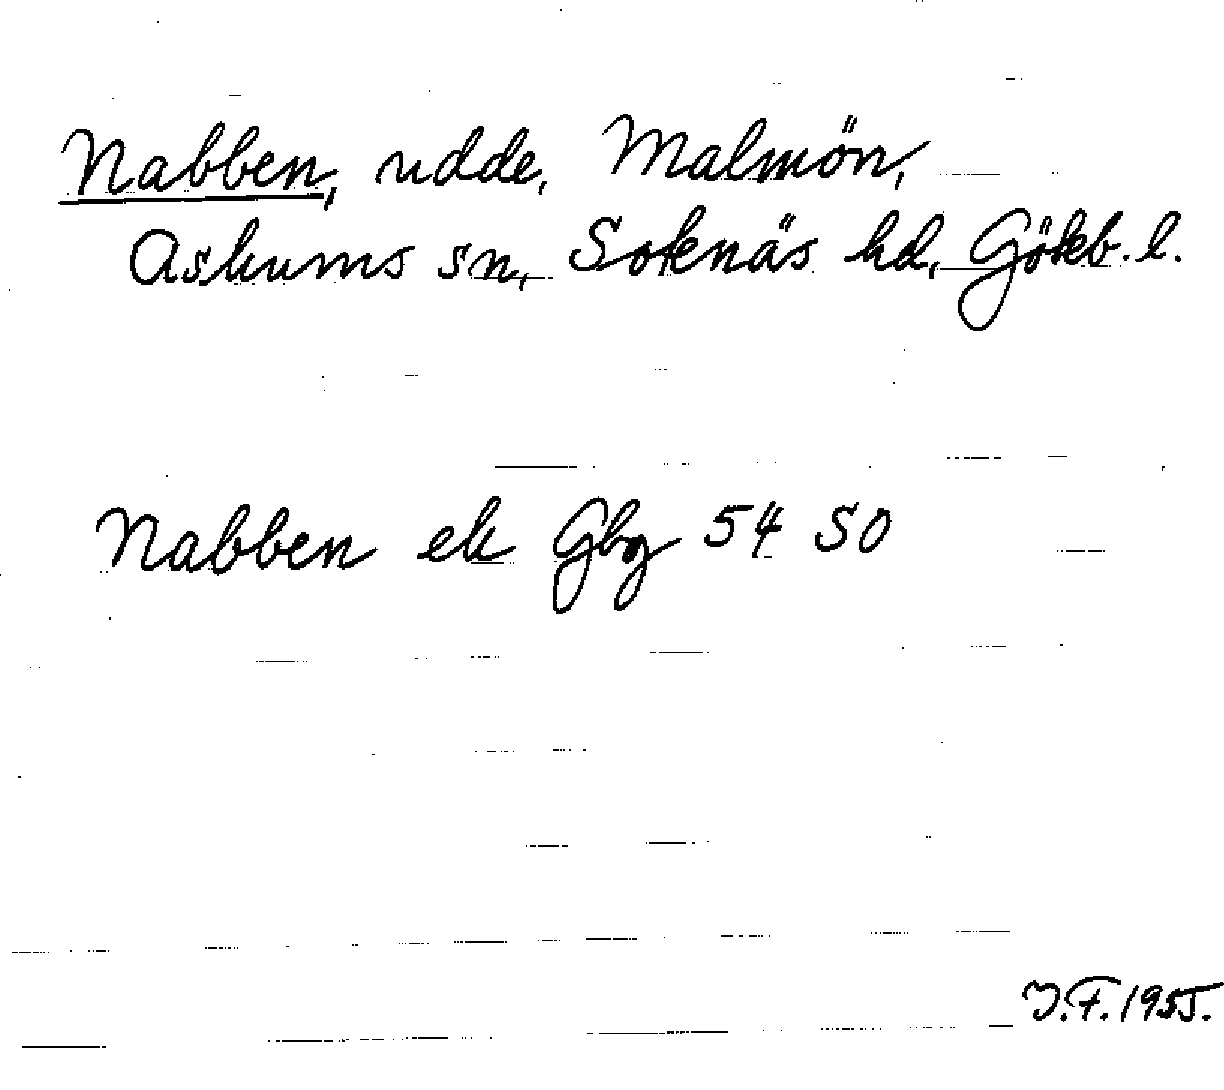 Nabben, udde, Malmön,
Askums sn, Sotenäs hd, Göteb. l.
Nabben ek Gbg 54 SO
J.F. 1955.